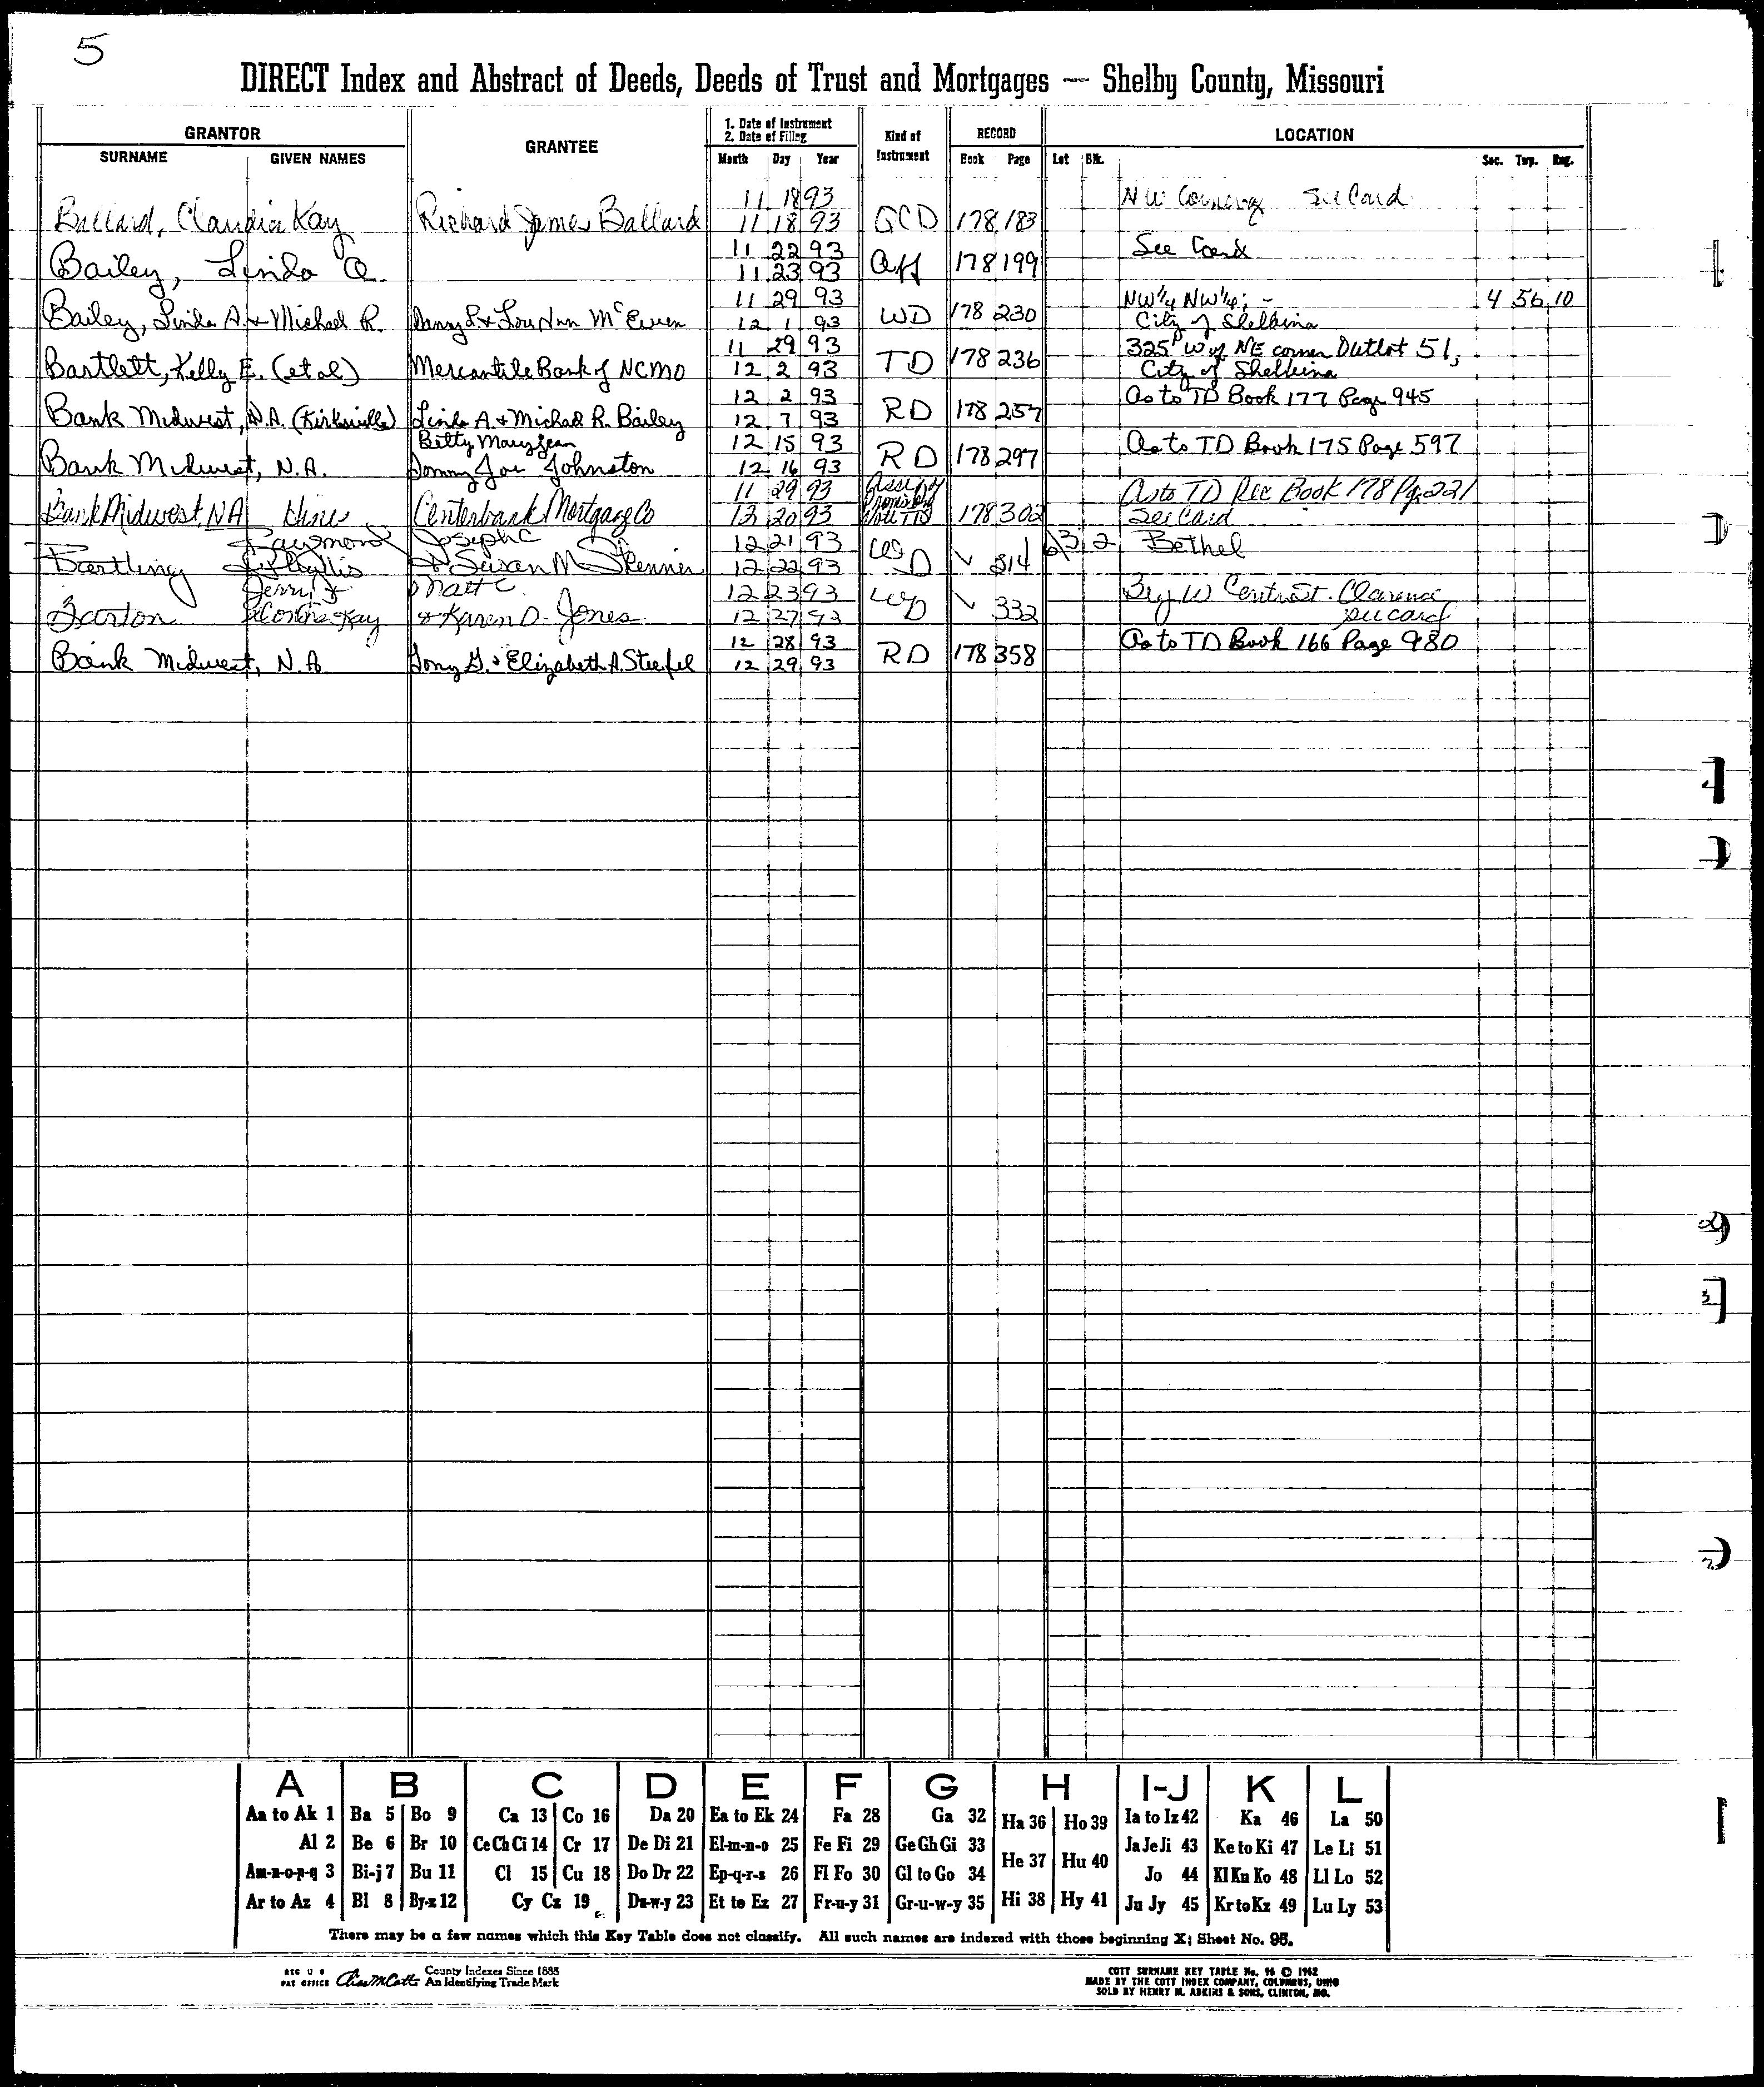 5
DIRECT Index and Abstract of Deeds, Deeds of Trust and Mortgages — Shelby County, Missouri
GRANTOR GRANTEE 1. Date of Instrument 2. Date of Filing Kind of Instrument RECORD LOCATION
SURNAME GIVEN NAMES Month Day Year Book Page Lot Blk. Sec. Twp. Rng.
11 18 93 NW Corner See Card
Ballard, Claudia Kay Richard James Ballard 11 18 93 QCD 178 183
11 22 93 See Card
Bailey, Linda A. 11 23 93 Aff 178 199
11 29 93 NW¼ NW¼; - 4 56 10
Bailey, Linda A. & Michael R. Danny L & Lou Ann McEwen 12 1 93 WD 178 230 City of Shelbina
11 29 93 325' W of NE corner Outlot 51,
Bartlett, Kelly E. (et al) Mercantile Bank of NCMO 12 2 93 TD 178 236 City of Shelbina
12 2 93 As to TD Book 177 Page 945
Bank Midwest, N.A. (Kirksville) Linda A. & Michael R. Bailey 12 7 93 RD 178 257
Betty Mary Jean 12 15 93 As to TD Book 175 Page 597
Bank Midwest, N.A. Tommy Joe Johnston 12 16 93 RD 178 297
11 29 93 Assign of Promissory Note TD As to TD Rec Book 178 Pg. 221
Bank Midwest, NA Centerbank Mortgage Co 12 20 93 178 302 See Card
Raymond Joseph C 12 21 93 WD 2 Bethel
Bartling & Phyllis & Susan M Skenner 12 22 93 ✓ 314
Jerry Matt C 12 23 93 WD Beg W Centr St. Clarence
Barton & Kay & Karen D. Jones 12 27 93 ✓ 332 see card
12 28 93 As to TD Book 166 Page 980
Bank Midwest, N.A. Tony G. & Elizabeth A. Steefel 12 29 93 RD 178 358
A B C D E F G H I-J K L
Aa to Ak 1 Ba 5 Bo 9 Ca 13 Co 16 Da 20 Ea to Ek 24 Fa 28 Ga 32 Ha 36 Ho 39 Ia to Iz 42 Ka 46 La 50
Al 2 Be 6 Br 10 Ce Ch Ci 14 Cr 17 De Di 21 El-m-n-o 25 Fe Fi 29 Ge Gh Gi 33 He 37 Hu 40 Ja Je Ji 43 Ke to Ki 47 Le Li 51
Am-n-o-p-q 3 Bi-j 7 Bu 11 Cl 15 Cu 18 Do Dr 22 Ep-q-r-s 26 Fl Fo 30 Gl to Go 34 Jo 44 Kl Kn Ko 48 Ll Lo 52
Ar to Az 4 Bl 8 By-z 12 Cy Cz 19 Du-w-y 23 Et to Ez 27 Fr-u-y 31 Gr-u-w-y 35 Hi 38 Hy 41 Ju Jy 45 Kr to Kz 49 Lu Ly 53
There may be a few names which this Key Table does not classify. All such names are indexed with those beginning X; Sheet No. 95.
REG U S PAT OFFICE County Indexes Since 1883 An Identifying Trade Mark
COTT SURNAME KEY TABLE No. 96 © 1962
MADE BY THE COTT INDEX COMPANY, COLUMBUS, OHIO
SOLD BY HENRY M. ADKINS & SONS, CLINTON, MO.